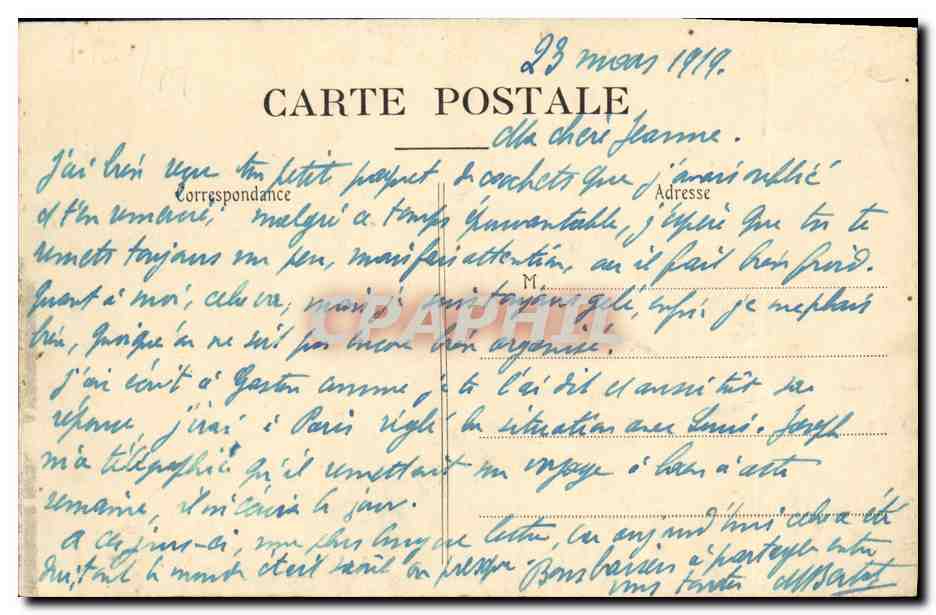 23 mars 1919.
CARTE POSTALE
Ma chère Jeanne.
J'ai bien reçu ton petit paquet de cachets que j'avais oublié
Correspondance
Adresse
et t'en remercie, malgré ce temps épouvantable, j'espère que tu te
remets toujours un peu, mais fais attention, car il fait bien froid.
M
Quant à moi, cela va, mais je suis toujours gelé, enfin je me plais
CPAPHIL
bien, quoiqu'on ne soit pas encore bien organisé.
J'ai écrit à Gaston comme je te l'ai dit et aussitôt sa
réponse, j'irai à Paris régler la situation avec Louis. Joseph
m'a télégraphié qu'il remettait son voyage à Caen à cette
semaine, il m'écrira le jour.
A ces jours-ci, une plus longue lettre, car aujourd'hui cela a été
tout le monde et il est presque
Bons baisers à partager entre
vous toutes